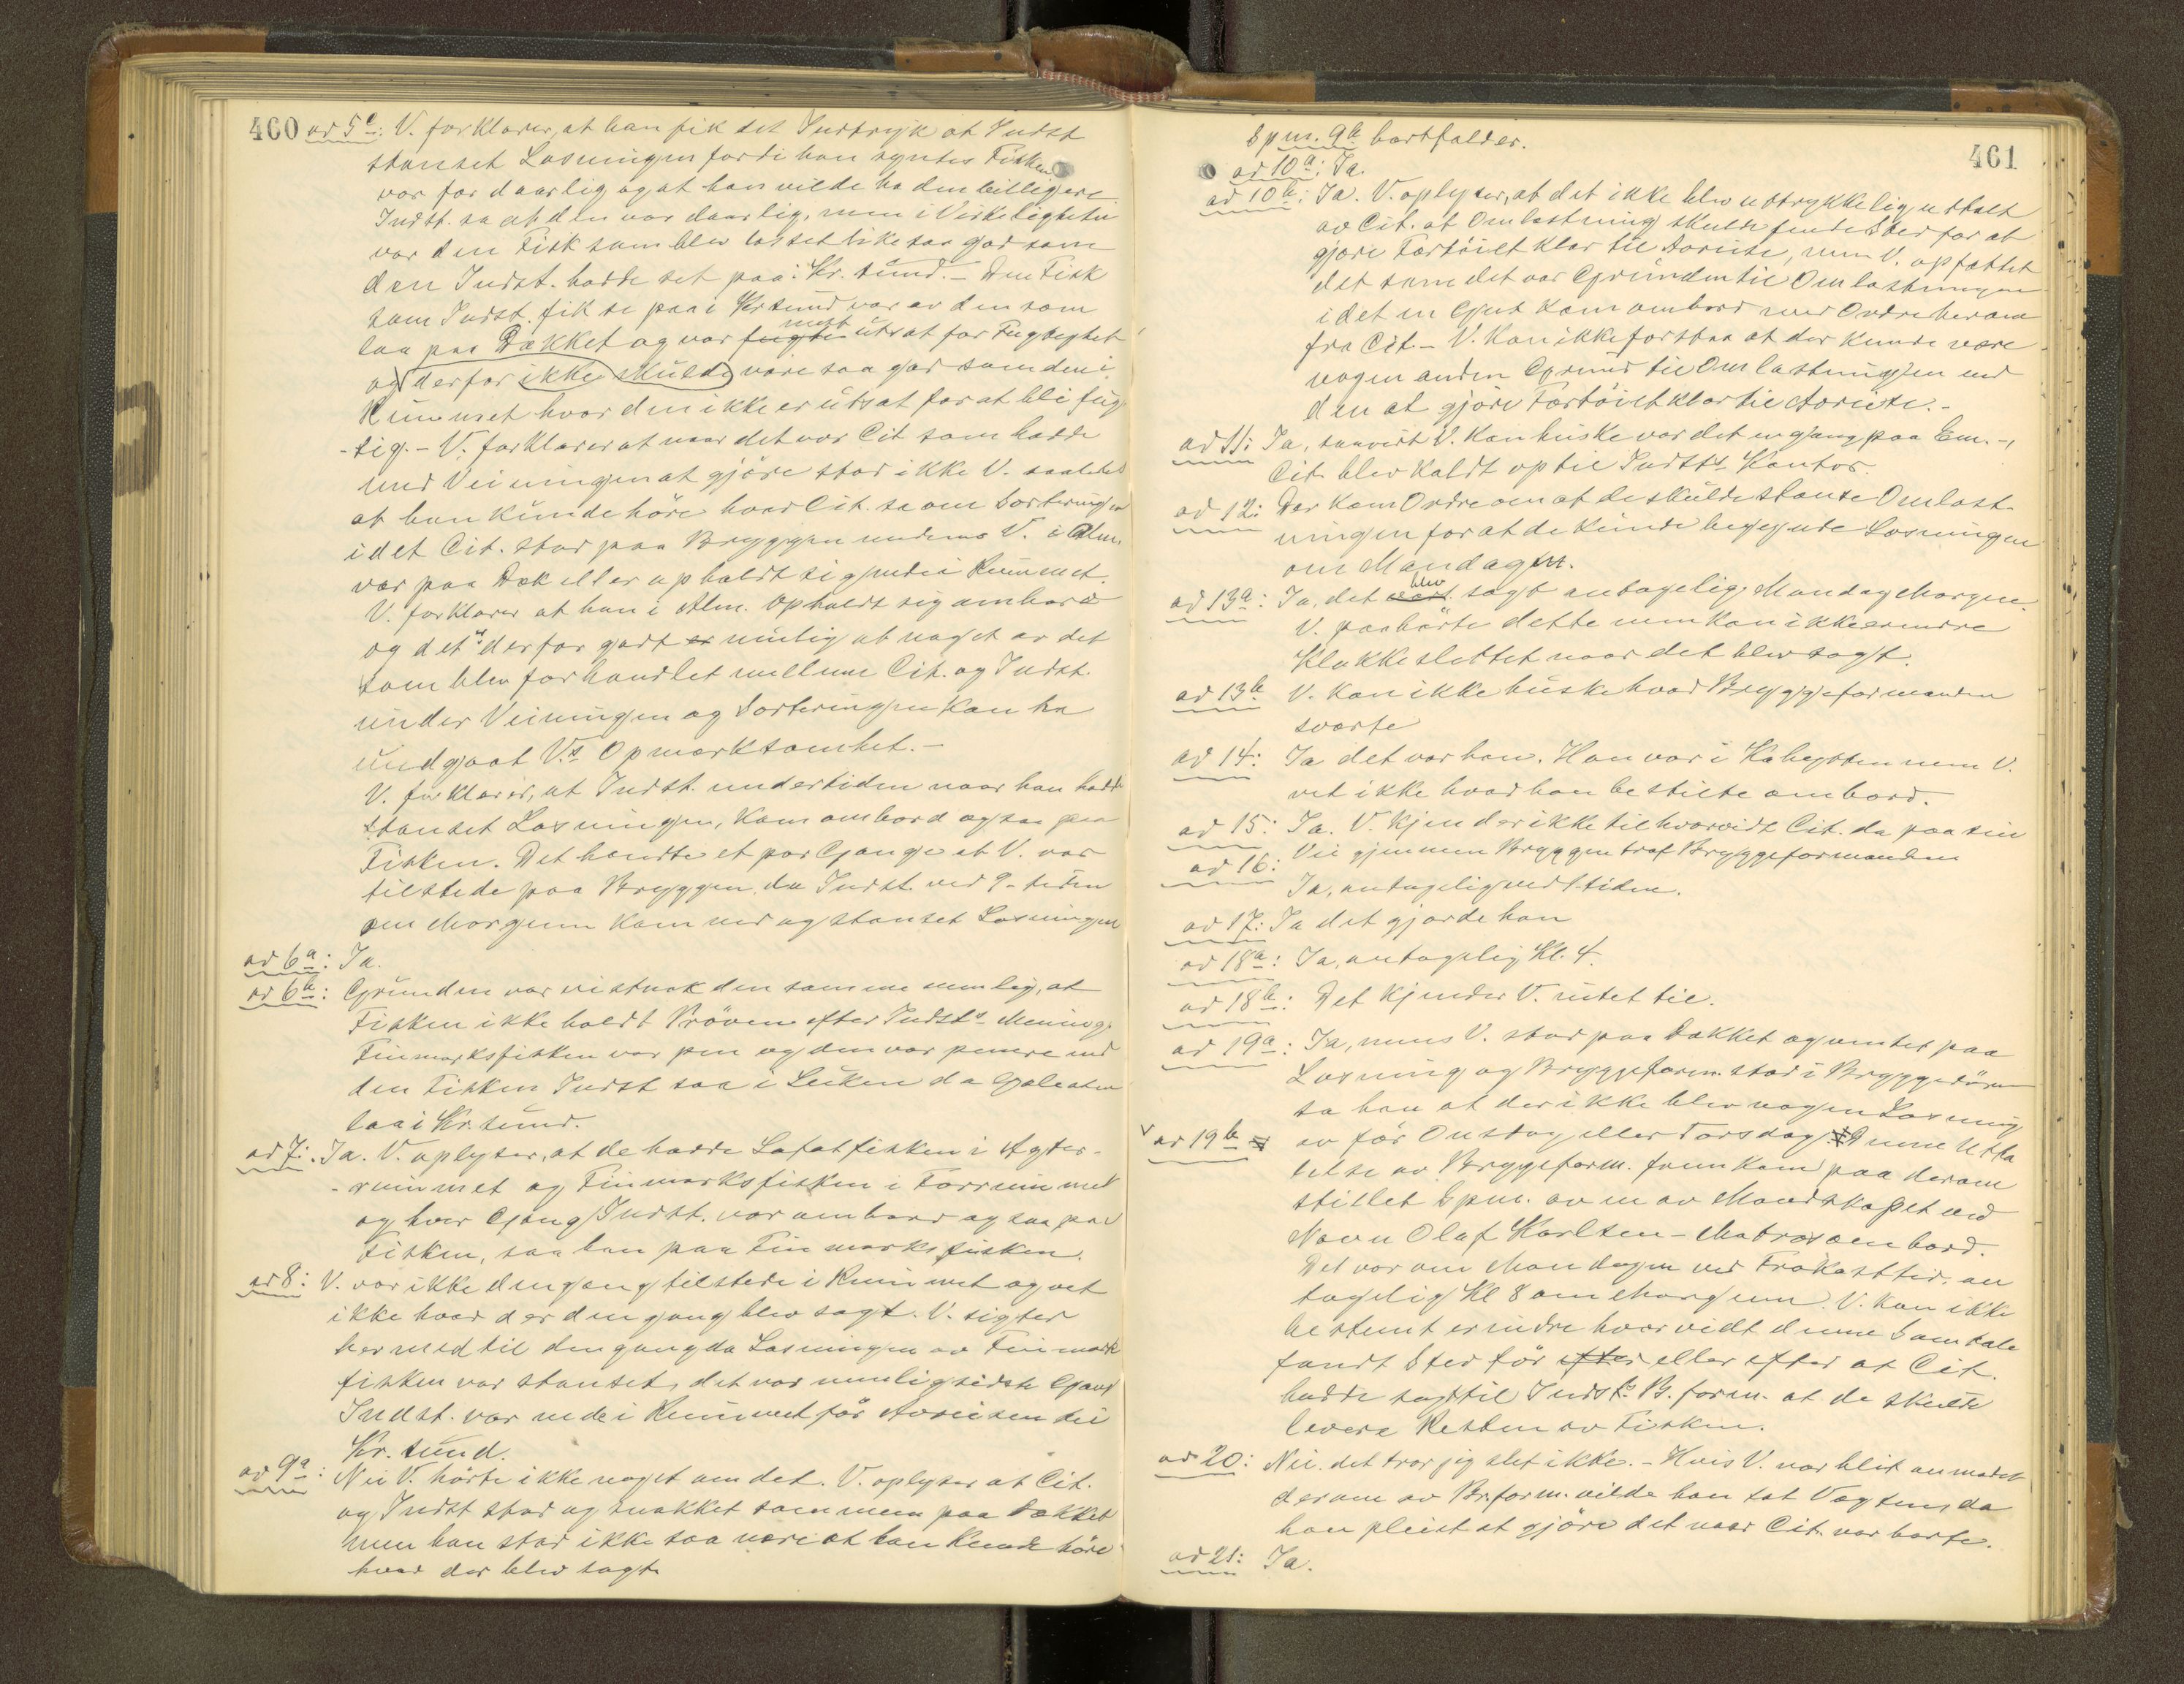 460
ad 5e: V. forklarer, at han fik det Indtryk at Indst
stanset Losningen fordi han syntes Fisken
var for daarlig og at han vilde ha den billigere
Indst. sa at den var daarlig, men i Virkeligheten
var den Fisk som blev losset like saa god som
den Indst. hadde set paa i Kr.sund. - Den Fisk
som Indst. fik se paa i Kr.sund var av den som
laa paa Dækket og var mest utsat for Fugtighet
og derfor ikke skulde være saa god som den i
Rummet hvor den ikke er utsat for at bli fug-
-tig. - V. forklarer at naar det var Cit. som hadde
med Veiningen at gjöre stod ikke V. saaledes
at han kunde höre hvad Cit. sa om Sorteringen
idet Cit. stod paa Bryggen medens V. i Alm.
var paa Dæk eller opholdt sig nede i Rummet.
V. forklarer at han i Alm. opholdt sig ombord
og det er derfor godt mulig at noget av det
som blev forhandlet mellem Cit. og Indst.
under Veiningen og Sorteringen kan ha
undgaat V.s Opmærksomhet. -
V. forklarer, at Indst. undertiden naar han hadde
stanset Losningen, kom ombord og saa paa
Fisken. Det hændte et par Gange at V. var
tilstede paa Bryggen, da Indst. ved 9-tiden
om Morgenen kom ned og stanset Losningen
ad 6a: Ja.
ad 6b: Grunden var vistnok den samme nemlig, at
Fisken ikke holdt Pröven efter Indsts Mening.
Finmarksfisken var pen og den var penere end
den Fisken Indst saa i Luken da Galeasen
laa i Kr.sund.
ad 7: Ja. V. oplyser, at de hadde Lofotfisken i Agter-
-rummet og Finmarksfisken i Forrummet
og hver Gang Indst. var ombord og saa paa
Fisken, saa han paa Finmarksfisken.
ad 8: V. var ikke dengang tilstede i Rummet og vet
ikke hvad der dengang blev sagt. V. sigter
hermed til dengang da Losningen av Finmark
fisken var stanset, det var nemlig sidste Gang
Indst. var nede i Rummet för Avreisen til
Kr.sund.
ad 9a: Nei V. hörte ikke noget om det. V. oplyser at Cit.
og Indst stod og snakket sammen paa Dækket
men han stod ikke saa nære at han kunde höre
hvad der blev sagt.
461
Spm. 9b bortfalder.
ad 10a: Ja.
ad 10b: Ja. V. oplyser, at det ikke blev udtrykkelig uttalt
av Cit. at Omlastning skulde finde Sted for at
gjöre Fartöiet klar til Avreise, men V. opfattet
det som det var Grunden til Omlastningen
idet en Gut kom ombord med Ordre herom
fra Cit. - V. kan ikke forstaa at der kunde være
nogen anden Grund til Omlastningen end
den at gjöre Fartöiet klar til Avreise. -
ad 11: Ja, saavidt V. kan huske var det engang paa Em. -,
Cit. blev kaldt op til Indsts Kontor.
ad 12: Der kom Ordre om at de skulde stanse Omlast-
ningen for at de kunde begynde Losningen
om Mandagen.
ad 13a: Ja, det blev sagt antagelig Mandag Morgen.
V. paahörte dette men kan ikke erindre
Klokkeslettet naar det blev sagt.
ad 13b V. kan ikke huske hvad Bryggeformanden
svarte
ad 14: Ja det var han. Han var i Kahytten men V.
vet ikke hvad han bestilte ombord.
ad 15: Ja. V. kjender ikke til hvorvidt Cit. da paa sin
Vei gjennem Bryggen traf Bryggeformanden
ad 16: Ja, antagelig ved 1-tiden.
ad 17: Ja det gjorde han
ad 18a: Ja, antagelig Kl. 4.
ad 18b: Det kjender V. intet til.
ad 19a: Ja, mens V. stod paa Dækket og ventet paa
Losning og Bryggeform. stod i Bryggedören
sa han at der ikke blev nogen Losning
ad 19b av för Onsdag eller Torsdag. Denne Utta
lelse av Bryggeform. fremkom paa derom
stillet Spm. av en av Mandskapet ved
Navn Olaf Karlsen - Matros ombord.
Det var om Mandagen ved Frokosttid, an
tagelig Kl 8 om Morgenen. V. kan ikke
bestemt erindre hvorvidt denne Samtale
fandt Sted för efter eller efter at Cit.
hadde sagt til Indsts B. form. at de skulde
levere Resten av Fisken.
ad 20: Nei. det tror jeg slet ikke. - Hvis V. var blit anmodet
derom av Br.form. vilde han tat Vægten, da
han pleiet at gjöre det naar Cit. var borte.
ad 21: Ja.